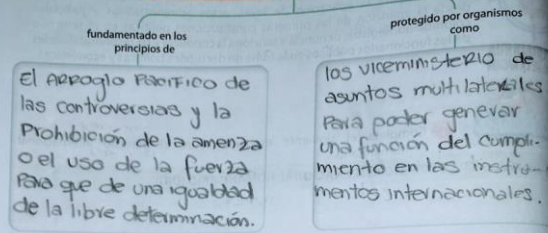 fundamentado en los
principios de
El Arroglo Pacifico de
las controversias y la
Prohibición de la amenza
o el uso de la fuerza
Para que de una igualdad
de la libre determinación.
protegido por organismos
como
los viceministerio de
asuntos multilaterales
Para poder generar
una función del cumpli-
miento en las instru-
mentos internacionales.